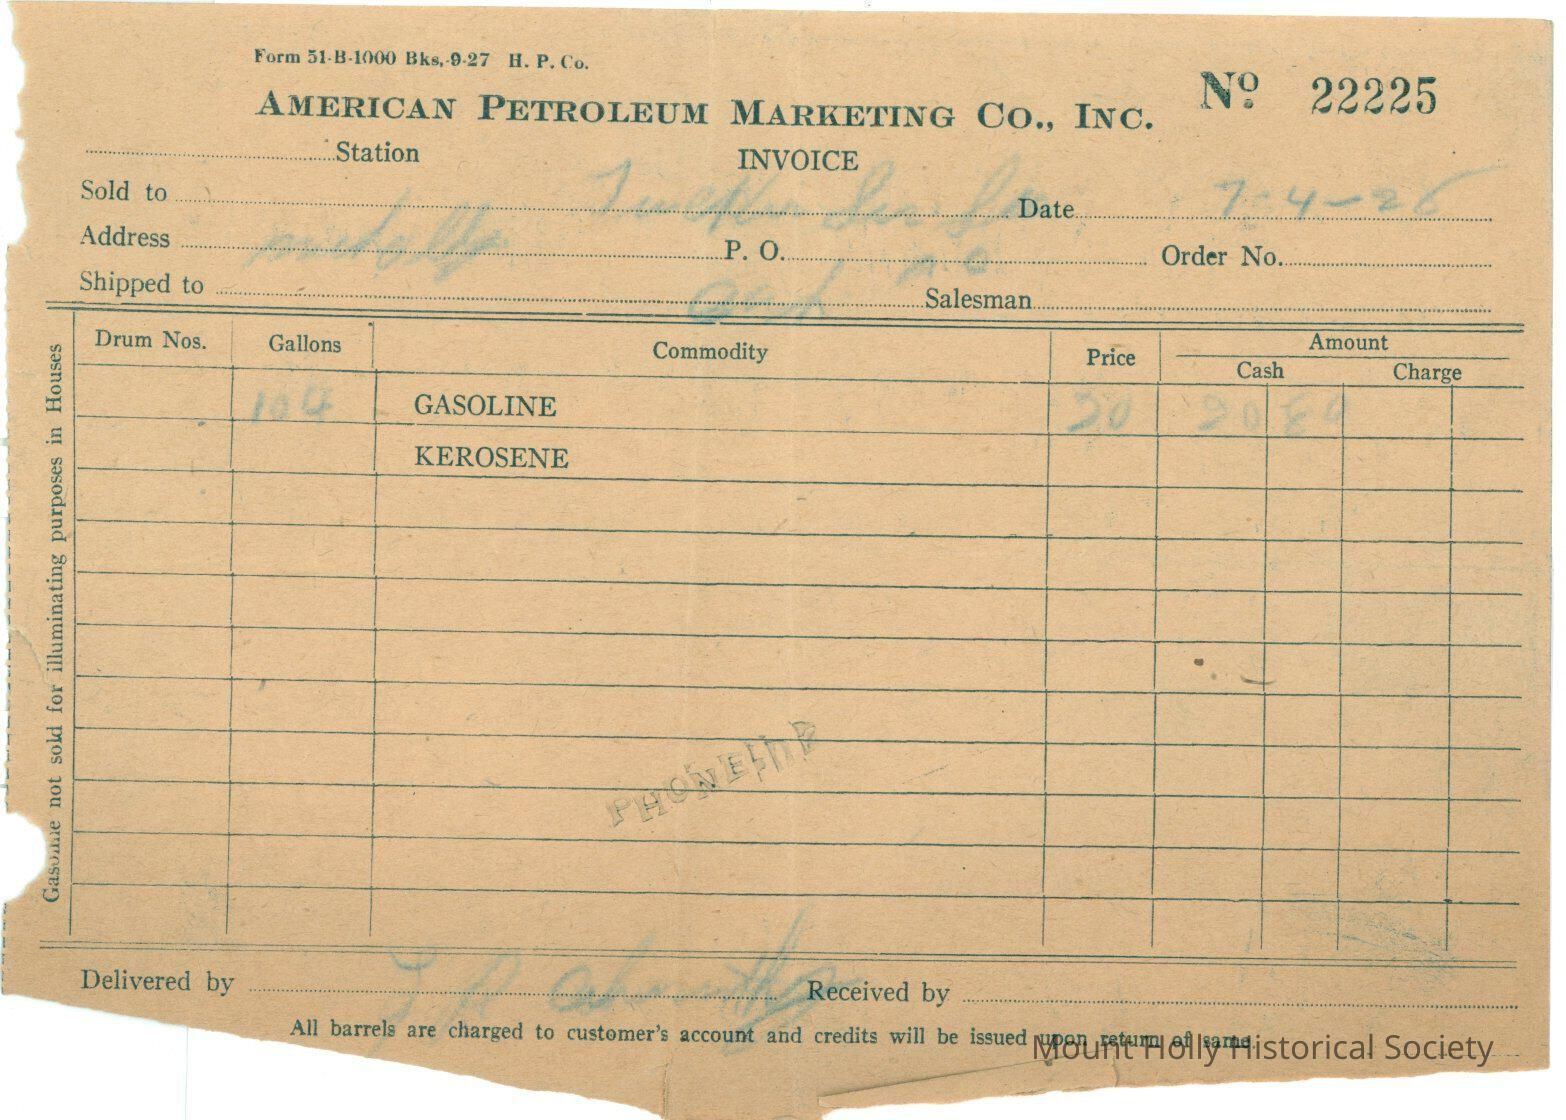 Form 51-B-1000 Bks,-9-27 H. P. Co.
AMERICAN PETROLEUM MARKETING CO., INC. No 22225
Station INVOICE
Sold to Date 7-4-26
Address P. O. Order No.
Shipped to Cash Salesman
Drum Nos. Gallons Commodity Price Amount
Cash Charge
104 GASOLINE 20 20 80
KEROSENE
Gasoline not sold for illuminating purposes in Houses
Delivered by Received by
All barrels are charged to customer's account and credits will be issued upon return of same.
Mount Holly Historical Society